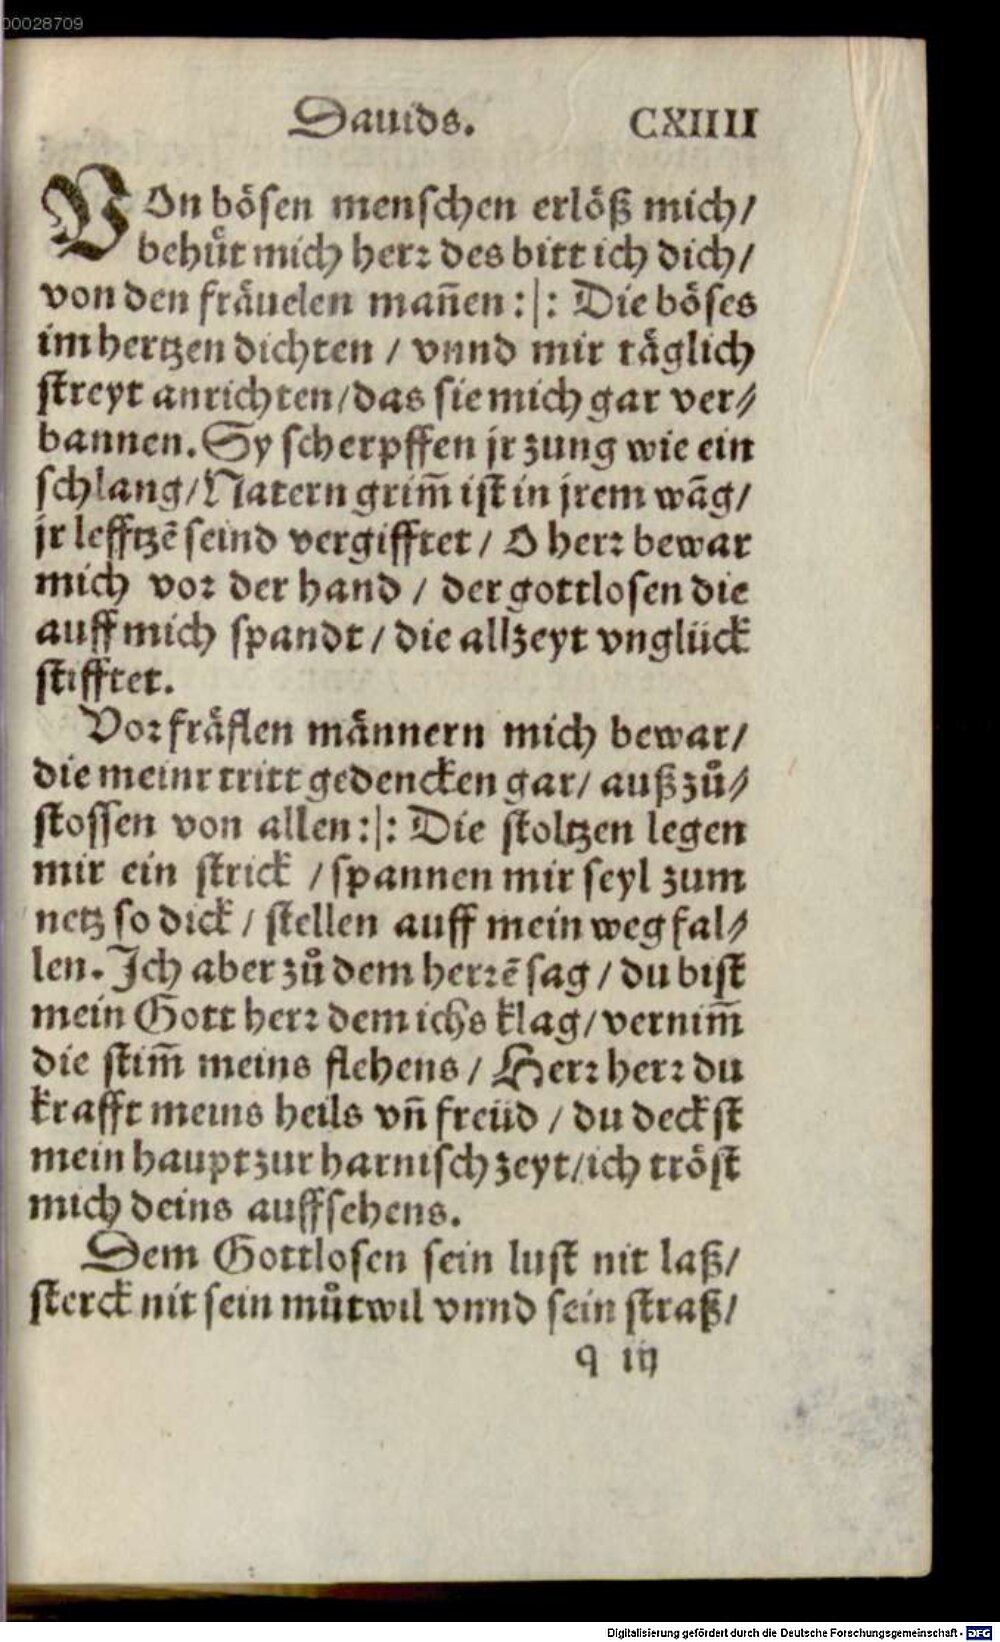 00028709
Dauids. CXIIII
VOn bösen menschen erlöß mich/
behuͤt mich herr des bitt ich dich/
von den fräuelen mañen :|: Die böses
im hertzen dichten / vnnd mir täglich
streyt anrichten/das sie mich gar ver⸗
bannen. Sy scherpffen jr zung wie ein
schlang/Natern grim̃ ist in jrem wãg/
jr lefftzẽ seind vergifftet / O herr bewar
mich vor der hand / der gottlosen die
auff mich spandt / die allzeyt vnglück
stifftet.
Vor fräflen männern mich bewar/
die meinr tritt gedencken gar/ auß zuͦ⸗
stossen von allen :|: Die stoltzen legen
mir ein strick / spannen mir seyl zum
netz so dick / stellen auff mein weg fal⸗
len. Ich aber zuͦ dem herrẽ sag / du bist
mein Gott herr dem ichs klag/vernim̃
die stim̃ meins flehens / Herr herr du
krafft meins heils vñ freüd / du deckst
mein haupt zur harnisch zeyt/ich tröst
mich deins auffsehens.
Dem Gottlosen sein lust nit laß/
sterck nit sein muͦtwil vnnd sein straß/
q iij
Digitalisierung gefördert durch die Deutsche Forschungsgemeinschaft - DFG